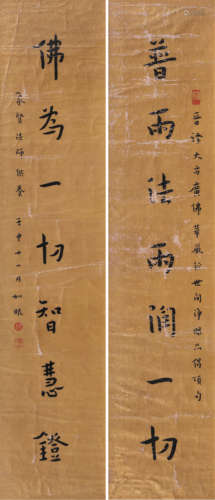 普雨法雨潤一切
晉譯大方廣佛華嚴經世間淨眼品偈頌句
佛為一切智慧鐙
賢法師供養 壬申十一月 如眼